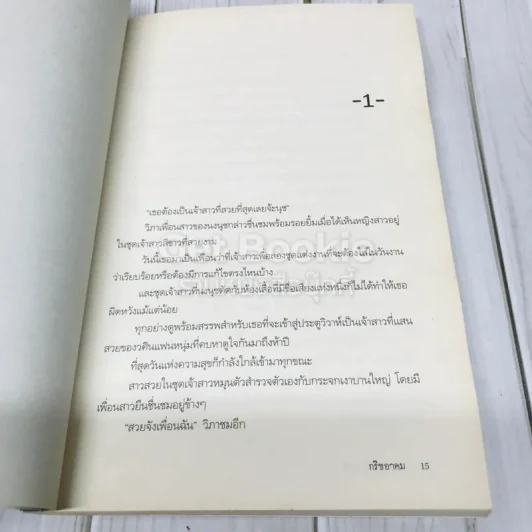 -1-
"เธอต้องเป็นเจ้าสาวที่สวยที่สุดเลยจ้ะนุช"
วิภาเพื่อนสาวของนงนุชกล่าวชื่นชมพร้อมรอยยิ้มเมื่อได้เห็นหญิงสาวอยู่
ในชุดเจ้าสาวสีขาวที่สวยงาม
วันนี้เธอมาเป็นเพื่อนว่าที่เจ้าสาวเพื่อลองชุดแต่งงานที่จะต้องใส่ในวันงาน
ว่าเรียบร้อยหรือต้องมีการแก้ไขตรงไหนบ้าง
และชุดเจ้าสาวที่นงนุชตัดกับห้องเสื้อที่มีชื่อเสียงแห่งหนึ่งก็ไม่ได้ทำให้เธอ
ผิดหวังแม้แต่น้อย
ทุกอย่างดูพร้อมสรรพสำหรับเธอที่จะเข้าสู่ประตูวิวาห์เป็นเจ้าสาวที่แสน
สวยของวศินแฟนหนุ่มที่คบหาดูใจกันมาถึงห้าปี
ที่สุดวันแห่งความสุขก็กำลังใกล้เข้ามาทุกขณะ
สาวสวยในชุดเจ้าสาวหมุนตัวสำรวจตัวเองกับกระจกเงาบานใหญ่ โดยมี
เพื่อนสาวยืนชื่นชมอยู่ข้างๆ
"สวยจังเพื่อนฉัน" วิภาชมอีก
กริชอาคม 15